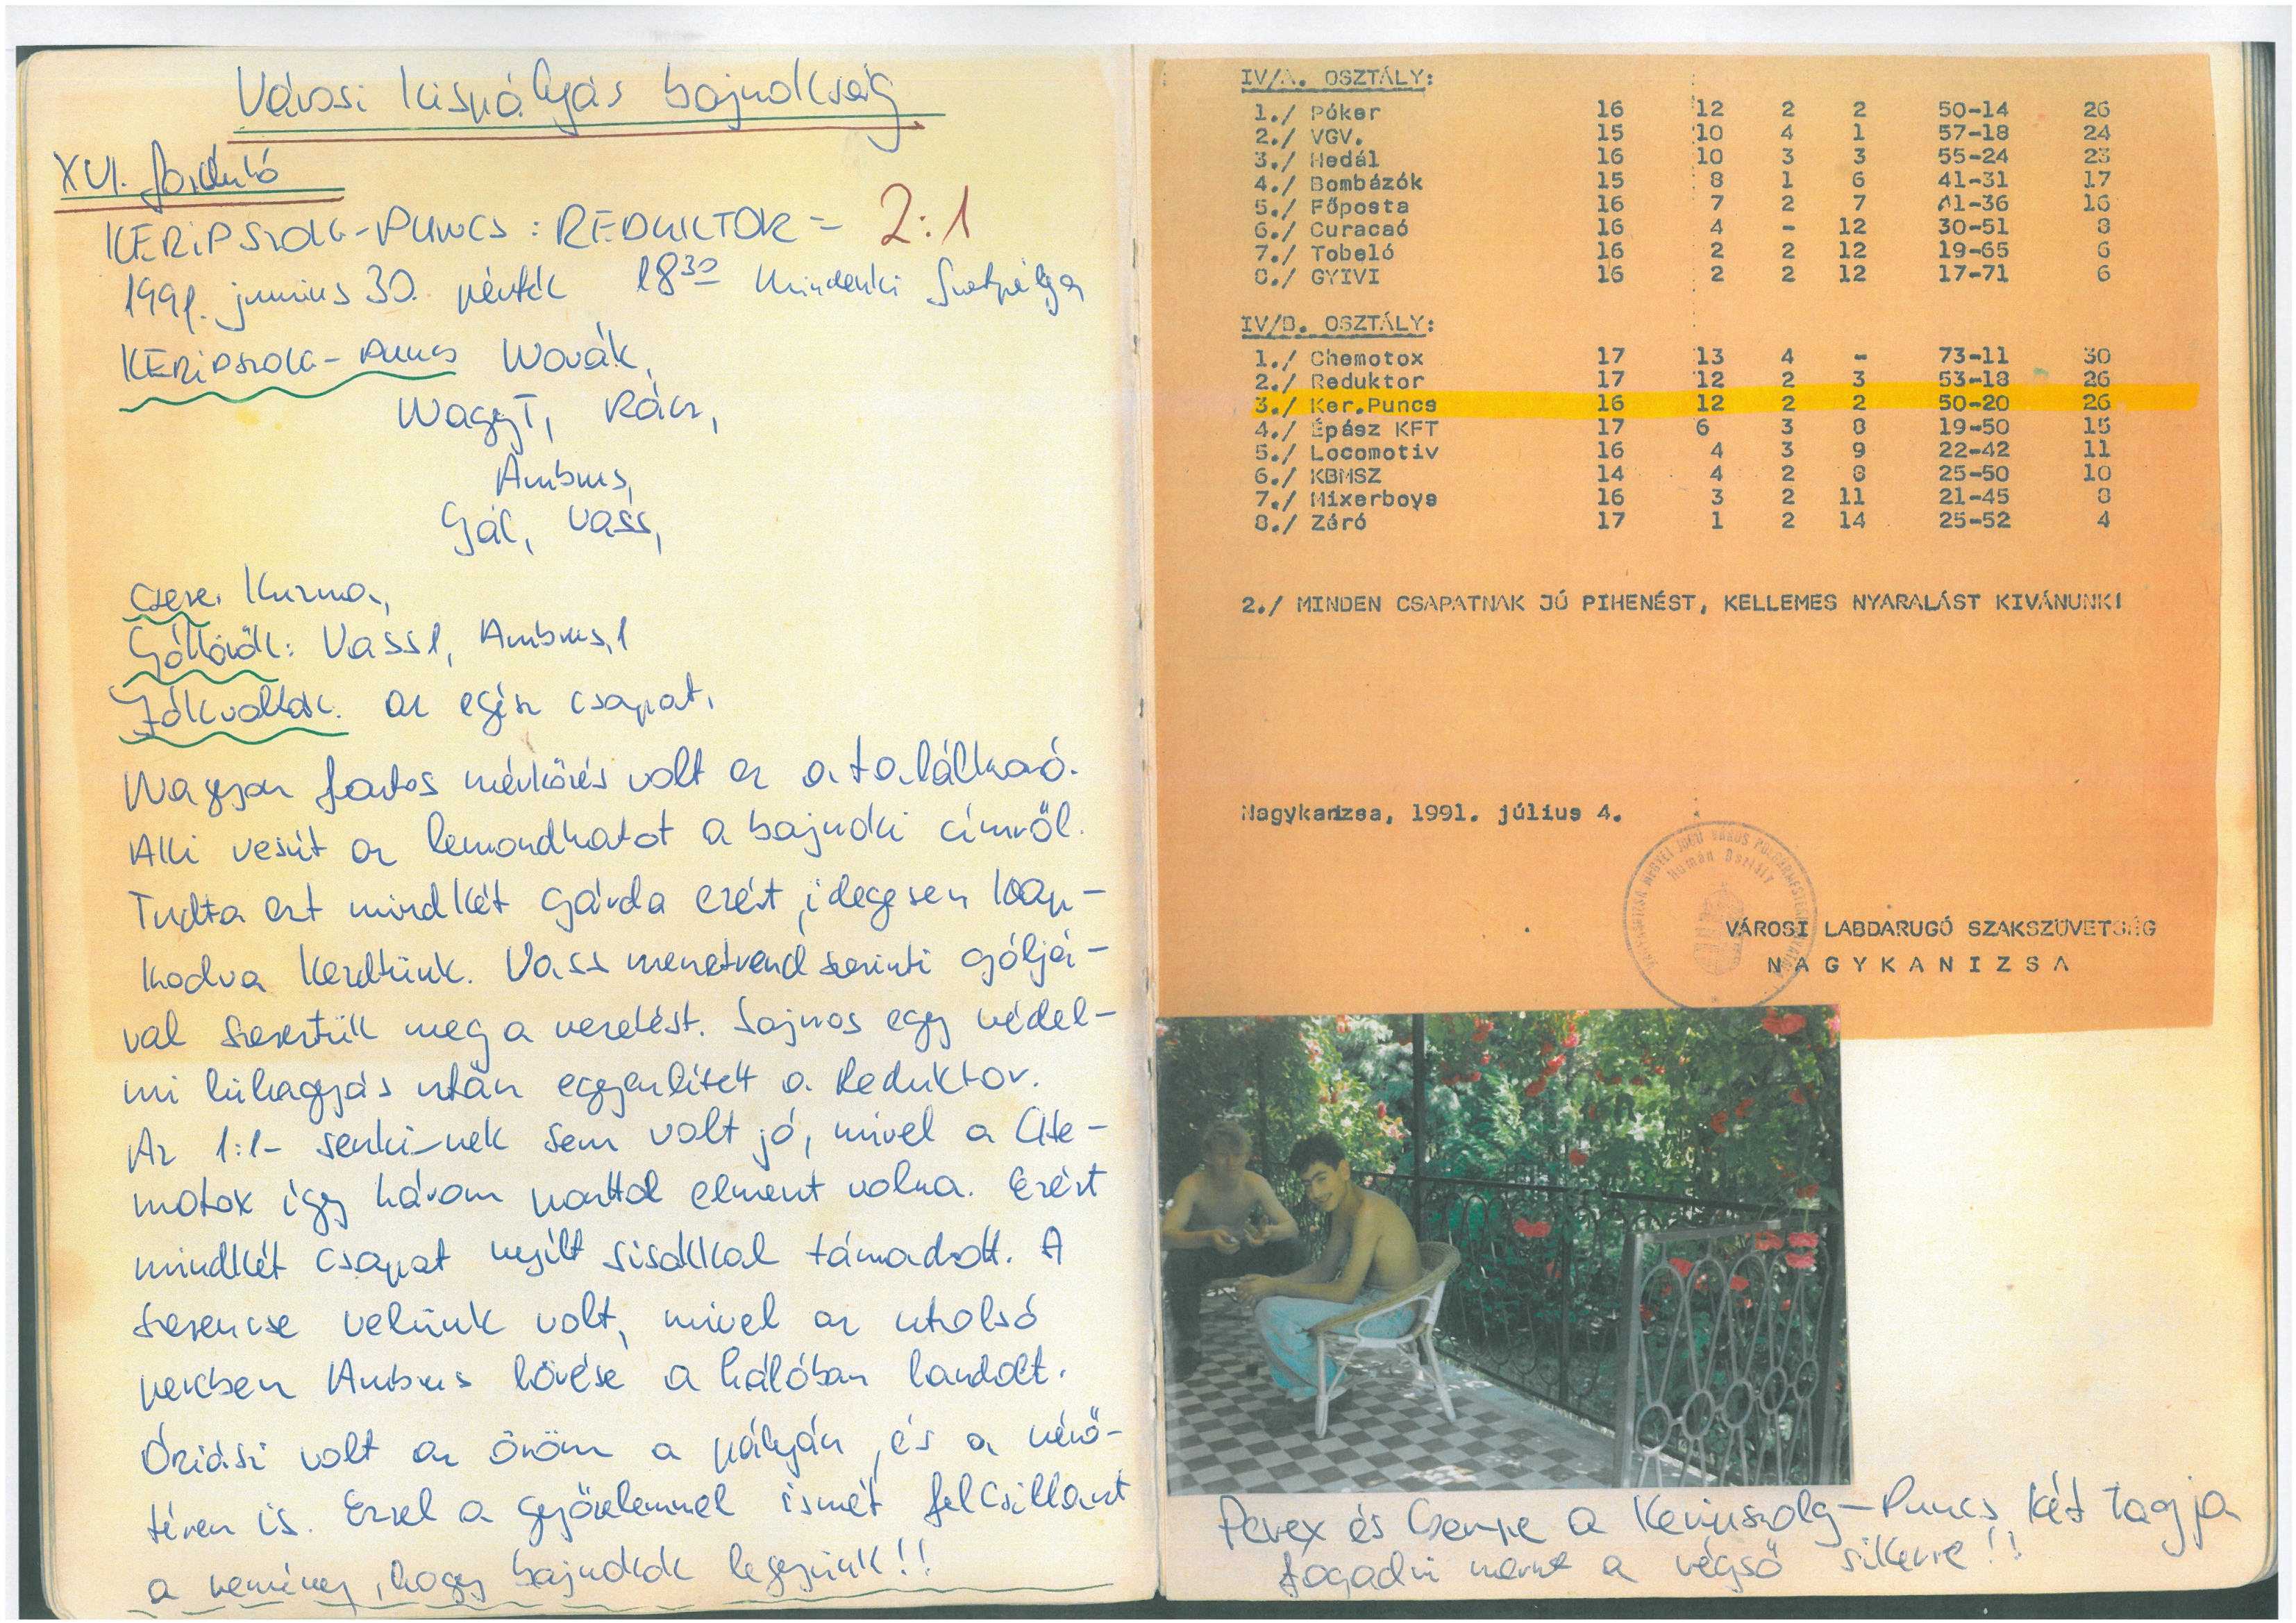 Városi kispályás bajnokság
XVI. forduló
KERIPSZOLG-PUNCS : REDUKTOR = 2:1
1991. junius 30. péntek 18 30 Mindenki Sportpálya
KERIPSZOLG-PUNCS Novák,
Nagy T, Rácz,
Ambrus,
Gál, Vass,
Csere: Kuzma,
Góllövők: Vass 1, Ambrus, 1
Jók voltak: az egész csapat.
Nagyon fontos mérkőzés volt ez a találkozó.
Aki veszít az lemondhatot a bajnoki címről.
Tudta ezt mindkét gárda ezért, idegesen kap-
kodva kezdtünk. Vass menetrend szerinti góljá-
val szereztük meg a vezetést. Sajnos egy védel-
mi kihagyás után egyenlített a Reduktor.
Az 1:1- senki-nek sem volt jó, mivel a Che-
motox így három ponttal elment volna. Ezért
mindkét csapat nyílt sisakkal támadott. A
szerencse velünk volt, mivel az utolsó
percben Ambrus lövése a hálóban landolt.
Óriási volt az öröm a pályán, és a néző-
téren is. Ezzel a győzelemmel ismét felcsillant
a remény, hogy bajnokok legyünk!!
IV/A. OSZTÁLY:
1./ Póker 16 12 2 2 50-14 26
2./ VGV. 15 10 4 1 57-18 24
3./ Hedál 16 10 3 3 55-24 23
4./ Bombázók 15 8 1 6 41-31 17
5./ Főposta 16 7 2 7 41-36 16
6./ Curacaó 16 4 - 12 30-51 8
7./ Tobeló 16 2 2 12 19-65 6
8./ GYIVI 16 2 2 12 17-71 6
IV/B. OSZTÁLY:
1./ Chemotox 17 13 4 - 73-11 30
2./ Reduktor 17 12 2 3 53-18 26
3./ Ker.Puncs 16 12 2 2 50-20 26
4./ Épász KFT 17 6 3 8 19-50 15
5./ Locomotiv 16 4 3 9 22-42 11
6./ KBMSZ 14 4 2 8 25-50 10
7./ Mixerboys 16 3 2 11 21-45 8
8./ Záró 17 1 2 14 25-52 4
2./ MINDEN CSAPATNAK JÓ PIHENÉST, KELLEMES NYARALÁST KIVÁNUNK!
Nagykanizsa, 1991. július 4.
Humán Osztály
VÁROSI LABDARUGÓ SZAKSZÖVETSÉG
NAGYKANIZSA
és a Keripszolg-Puncs két tagja
fogadni mert a végső sikerre!!